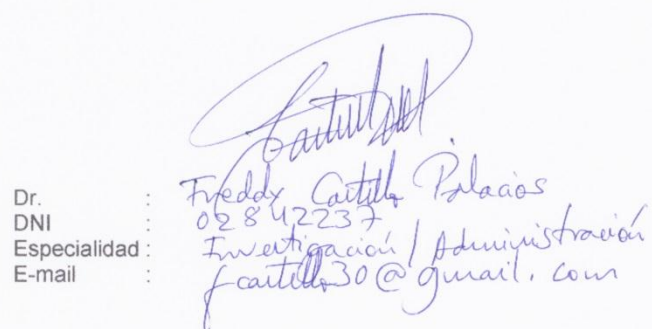 Dr. : Freddy Castillo Palacios
DNI : 02842237
Especialidad : Investigación / Administración
E-mail : fcastillo30@gmail.com